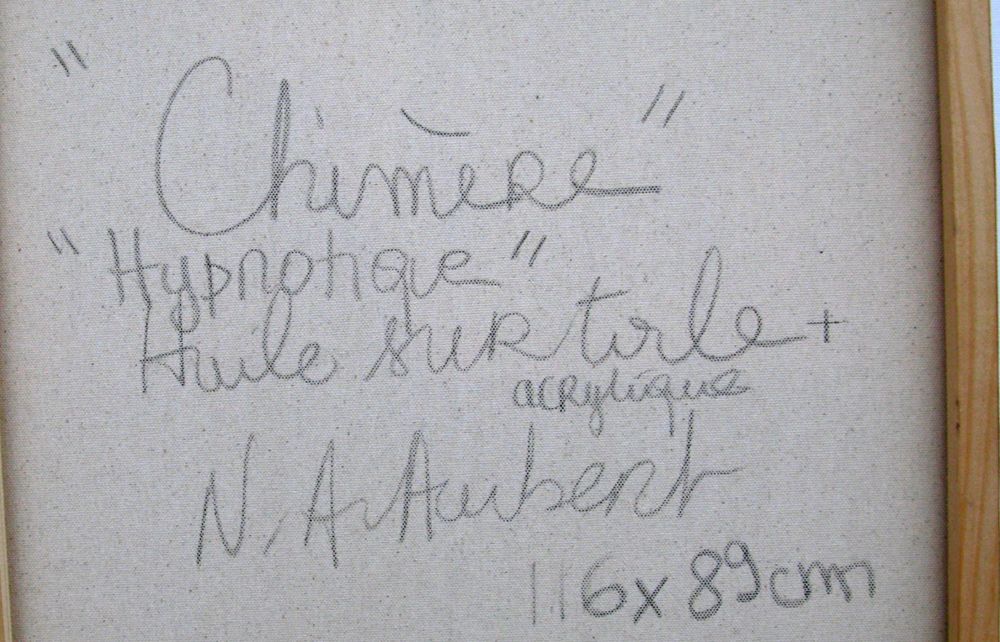 "Chimère"
"Hypnotique"
Huile sur toile +
acrylique
N. A. Aubert
116 x 89 cm